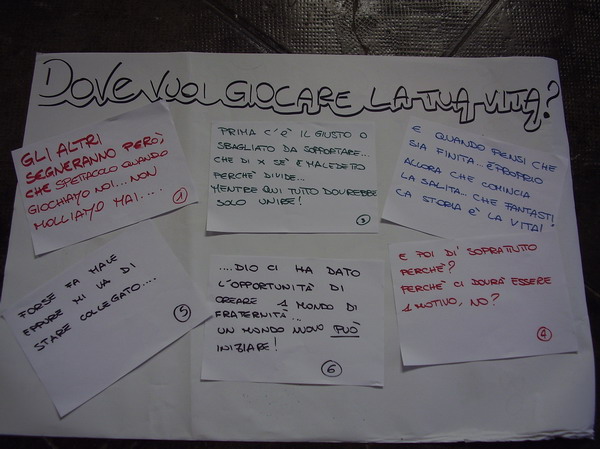 DOVE VUOI GIOCARE LA TUA VITA?
GLI ALTRI
SEGNERANNO PERÒ,
CHE SPETTACOLO QUANDO
GIOCHIAMO NOI... NON
MOLLIAMO MAI....
1
PRIMA C'È IL GIUSTO O
SBAGLIATO DA SOPPORTARE...
CHE DI X SÈ È MALEDETTO
PERCHÈ DIVIDE...
MENTRE QUI TUTTO DOVREBBE
SOLO UNIRE!
3
E QUANDO PENSI CHE
SIA FINITA... È PROPRIO
ALLORA CHE COMINCIA
LA SALITA... CHE FANTASTI
CA STORIA È LA VITA!
FORSE FA MALE
EPPURE MI VA DI
STARE COLLEGATO....
5
....DIO CI HA DATO
L'OPPORTUNITÀ DI
CREARE 1 MONDO DI
FRATERNITÀ...
UN MONDO NUOVO PUÒ
INIZIARE!
6
E POI DI' SOPRATTUTTO
PERCHÈ?
PERCHÈ CI DOVRÀ ESSERE
1 MOTIVO, NO?
4